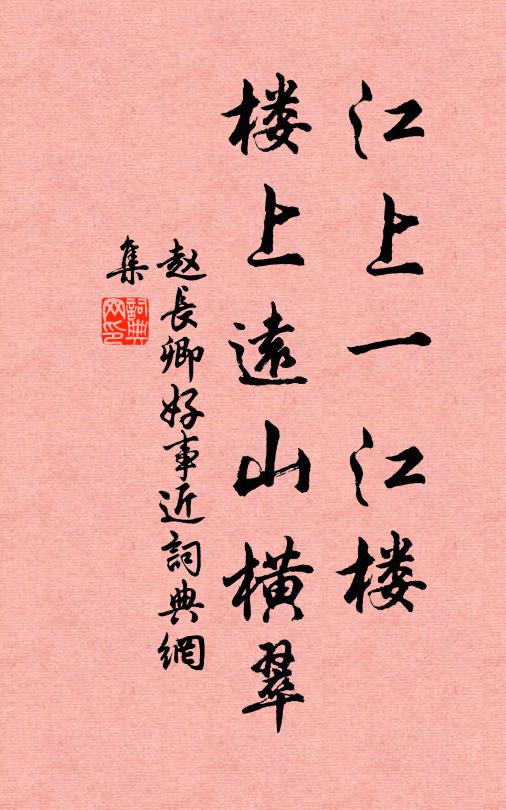 江上一江楼
楼上遠山横翠
赵長卿好事近詞典網
集
詞典网印